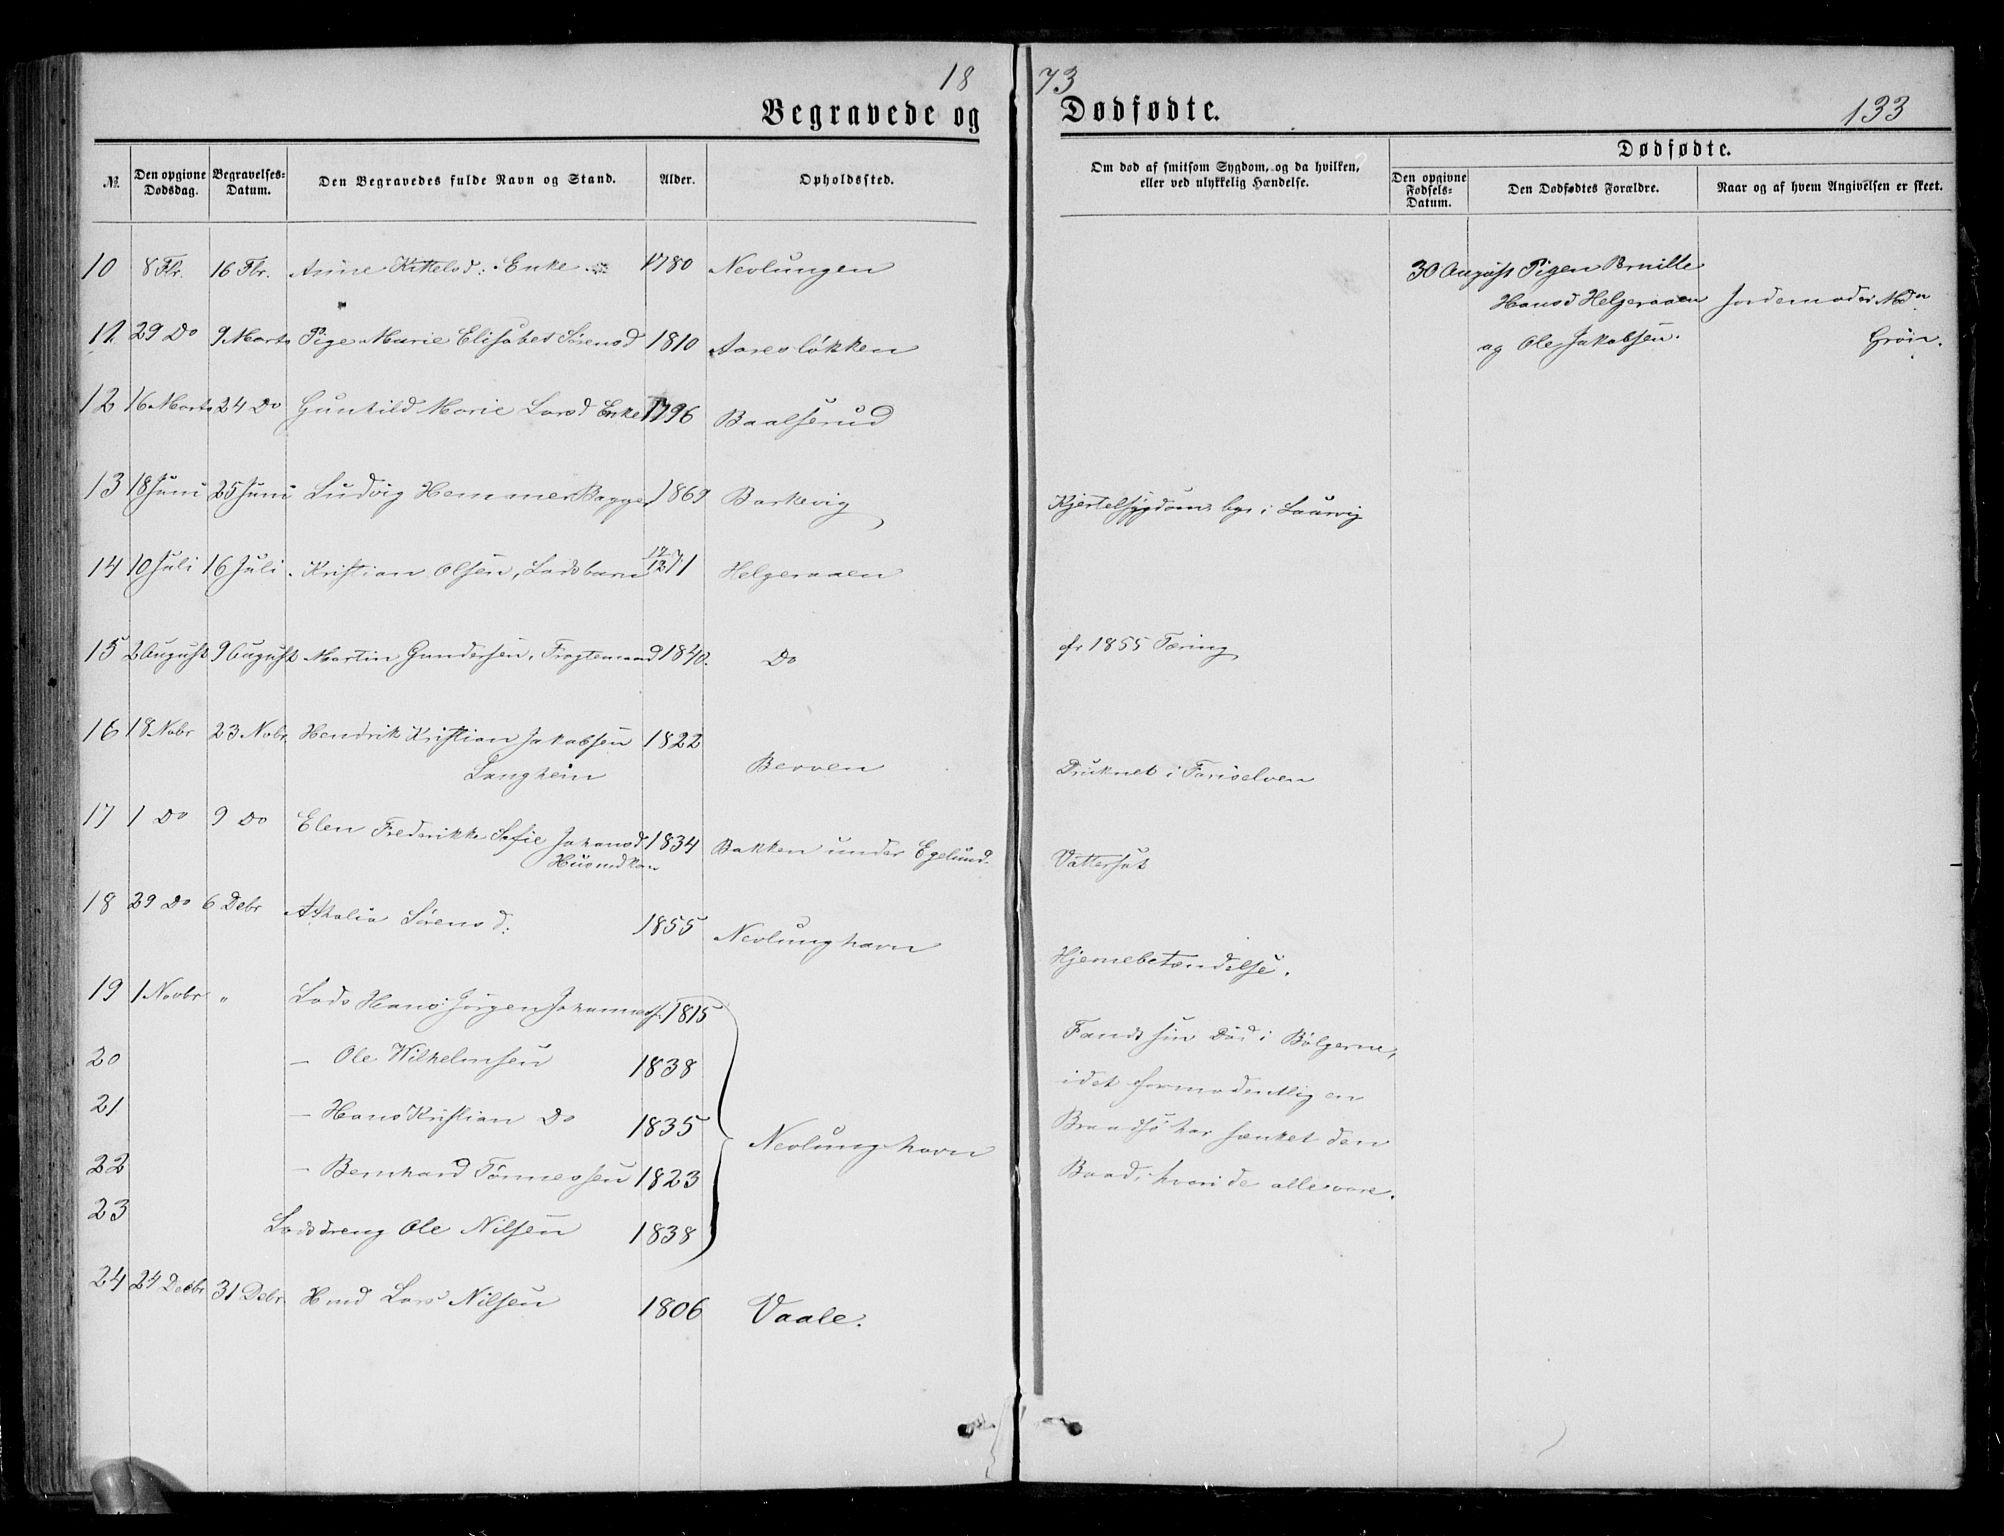 18 73
Begravede og Dødfødte.
133
№
Den opgivne Dødsdag.
Begravelses-Datum.
Den Begravedes fulde Navn og Stand.
Alder.
Opholdssted.
Om død af smitsom Sygdom, og da hvilken, eller ved ulykkelig Hændelse.
Dødfødte.
Den opgivne Fødsels-Datum.
Den Dødfødtes Forældre.
Naar og af hvem Angivelsen er skeet.
10 8 Fbr. 16 Fbr. Anne Kittelsd: Enke 1780 Nevlungen
30 August Pigen Brnille
Hansd Helgeraaen Jordemoder Mdn
og Ole Jakobsen. Grøn.
11. 29 Do 9 Marts Pige Marie Elisabet Sørensd 1810 Aaresløkken
12 16 Marts 24 Do Gunhild Marie Larsd Enke 1796 Baalserud
13 18 Juni 25 Juni Ludvig Hemmer Bagger 1869 Barkevig Kjertelsygdom, bgr i Laurvig
14 10 Juli 16 Juli. Kristian Olsen, Lodsbarn 17/12 71 Helgeraaen
15 2 August 9 August Martin Gundersen, Fragtemand 1840. Do fr 1855 Tæring
16 18 Nobr 23 Nobr. Hendrik Kristian Jakobsen 1822
Langhein Berven Druknet i Fariselven
17 1 Do 9 Do Elen Frederikke Sofie Johansd. 1834 Bakken under Egelund.
Husmdkon Vattersot
18 29 Do 6 Debr Athalia Sørensd: 1855 Nevlunghavn
Hjernebetændelse.
19 1 Novbr " Lods Hans Jørgen Johannesf. 1815
20 – Ole Wilhelmsen 1838
21 – Hans Kristian Do 1835
22 – Bernhard Tønnessen 1823
23 Lodsdreng Ole Nilsen 1838
Nevlunghavn
Fandt sin Død i Bølgerne,
idet formodentlig en
Braadsø har sænket den
Baad, hvori de alle vare.
24 24 Decbr 31 Debr. Hmd Lars Nilsen 1806 Vaale.